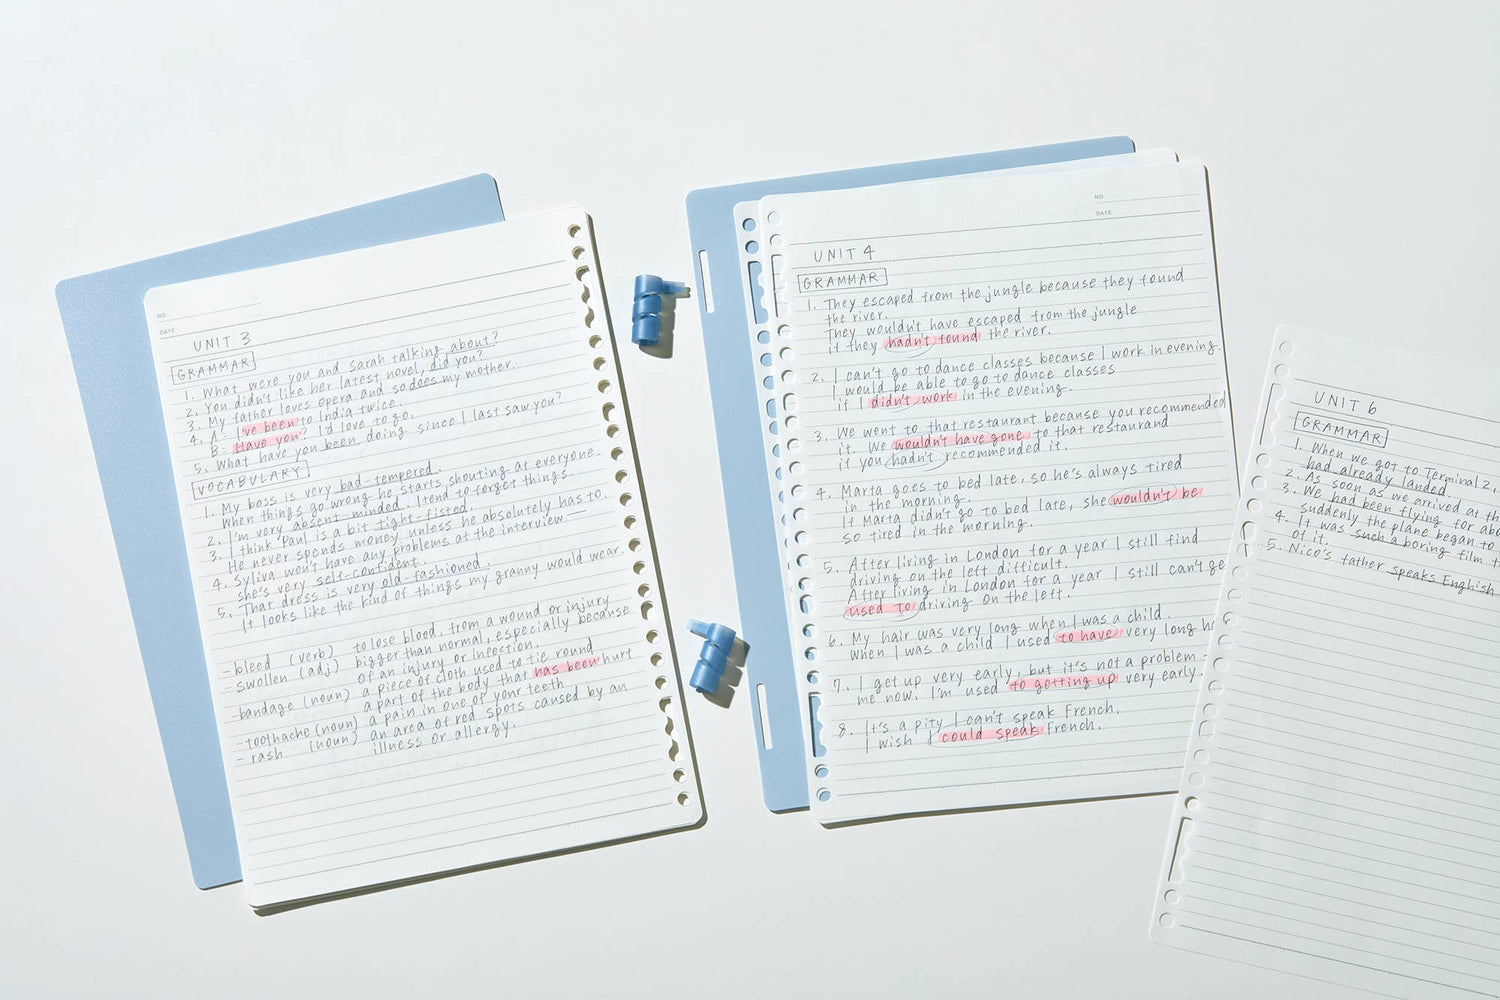 NO.
DATE
UNIT 3
GRAMMAR
1. What were you and Sarah talking about?
2. You didn't like her latest novel, did you?
3. My father loves opera and so does my mother.
4. A: I've been to India twice.
B: Have you? I'd love to go.
5. What have you been doing since I last saw you?
VOCABULARY
1. My boss is very bad-tempered.
When things go wrong he starts shouting at everyone.
2. I'm very absent-minded. I tend to forget things.
3. I think Paul is a bit tight-fisted.
He never spends money unless he absolutely has to.
4. Syliva won't have any problems at the interview
she's very self-confident.
5. That dress is very old-fashioned.
It looks like the kind of things my granny would wear.
- bleed (verb) to lose blood, from a wound or injury
- swollen (adj) bigger than normal, especially because
of an injury or infection.
- bandage (noun) a piece of cloth used to tie round
a part of the body that has been hurt
- toothache (noun) a pain in one of your teeth
- rash (noun) an area of red spots caused by an
illness or allergy.
NO.
DATE
UNIT 4
GRAMMAR
1. They escaped from the jungle because they found
the river.
They wouldn't have escaped from the jungle
if they hadn't found the river.
2. I can't go to dance classes because I work in evening.
I would be able to go to dance classes
if I didn't work in the evening.
3. We went to that restaurant because you recommended
it. We wouldn't have gone to that restaurand
if you hadn't recommended it.
4. Marta goes to bed late, so he's always tired
in the morning.
If Marta didn't go to bed late, she wouldn't be
so tired in the morning.
5. After living in London for a year I still find
driving on the left difficult.
After living in London for a year I still can't ge
used to driving on the left.
6. My hair was very long when I was a child.
When I was a child I used to have very long h
7. I get up very early, but it's not a problem -
me now. I'm used to getting up very early.
8. It's a pity I can't speak French.
I wish I could speak French.
UNIT 6
GRAMMAR
1. When we got to Terminal 2,
had already landed.
2. As soon as we arrived at th
3. We had been flying for abo
suddenly the plane began to
4. It was such a boring film t
of it.
5. Nico's father speaks English